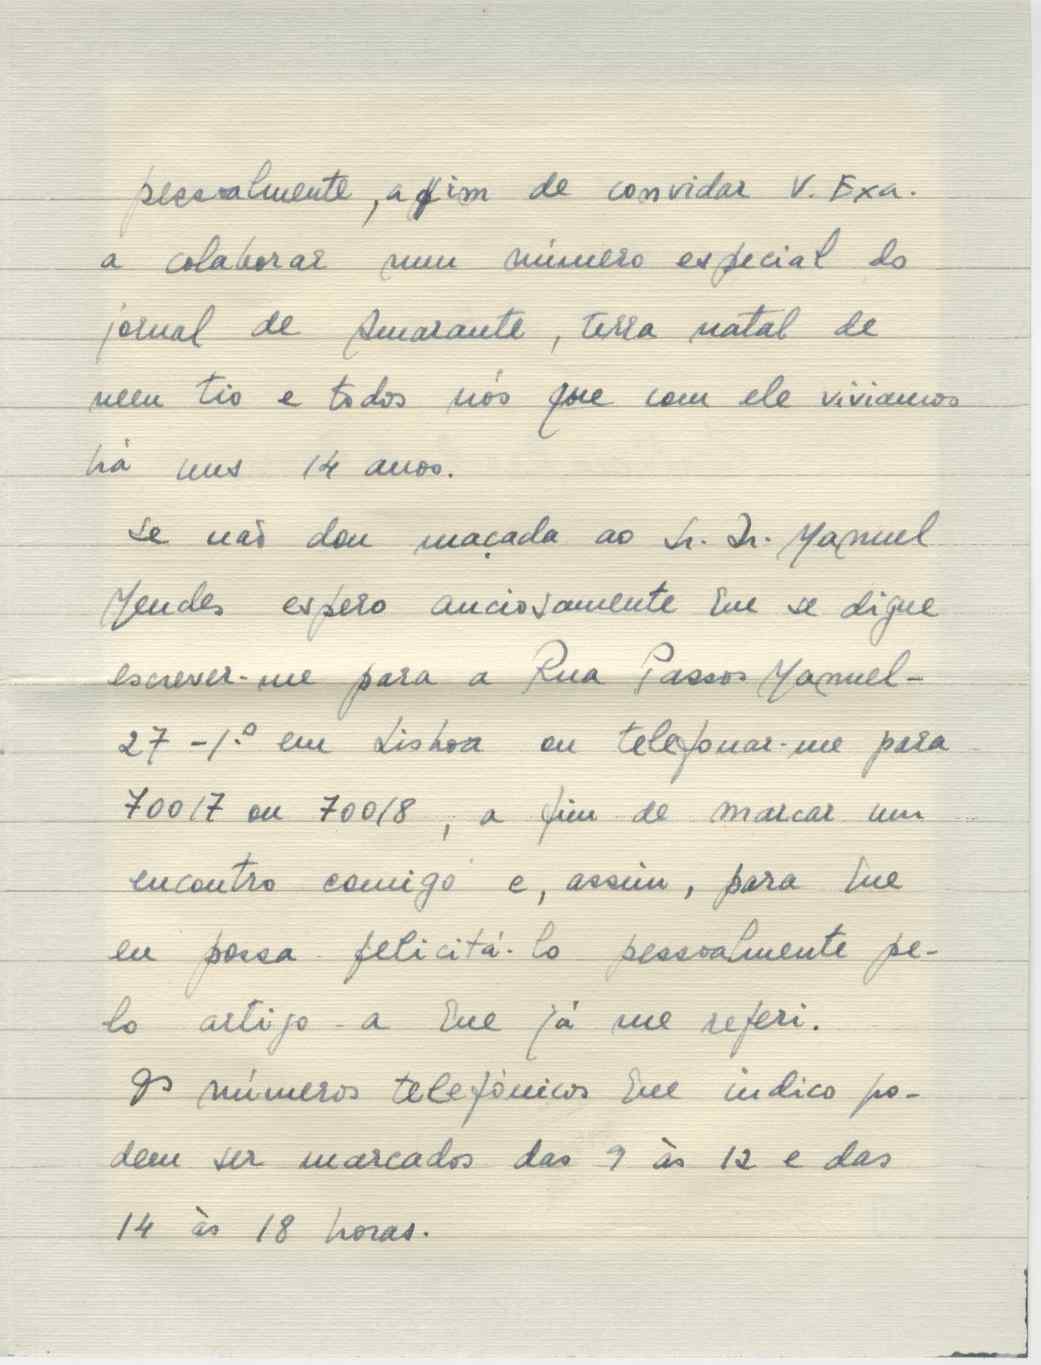 pessoalmente, a fim de convidar V. Exa.
a colaborar num número especial do
jornal de Amarante, terra natal de
meu tio e todos nós que com ele viviamos
há uns 14 anos.
Se não dou maçada ao Sr. Dr. Manuel
Mendes espero anciosamente que se digne
escrever-me para a Rua Passos Manuel-
27-1.º em Lisboa ou telefonar-me para
70017 ou 70018, a fim de marcar um
encontro comigo e, assim, para que
eu possa felicitá-lo pessoalmente pe-
lo artigo a que já me referi.
Os números telefónicos que indico po-
dem ser marcados das 9 às 12 e das
14 às 18 horas.